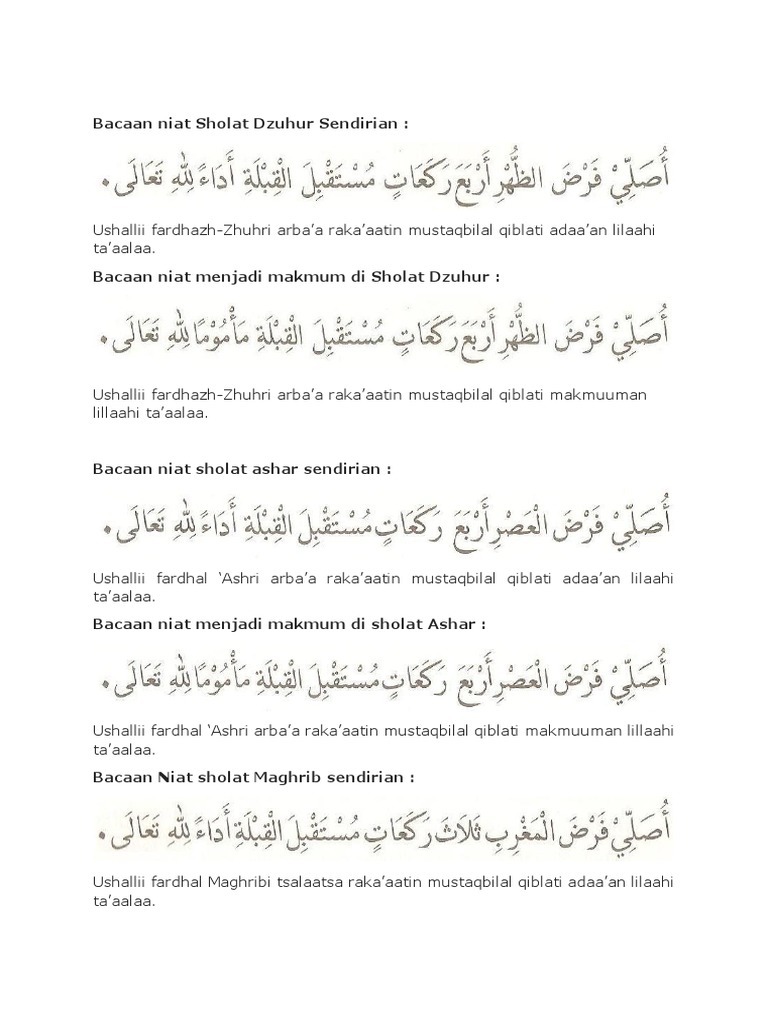 Bacaan niat Sholat Dzuhur Sendirian :
أُصَلِّيْ فَرْضَ الظُّهْرِ أَرْبَعَ رَكَعَاتٍ مُسْتَقْبِلَ الْقِبْلَةِ أَدَاءً لِلّٰهِ تَعَالَى ٠
Ushallii fardhazh-Zhuhri arba’a raka’aatin mustaqbilal qiblati adaa’an lilaahi
ta’aalaa.
Bacaan niat menjadi makmum di Sholat Dzuhur :
أُصَلِّيْ فَرْضَ الظُّهْرِ أَرْبَعَ رَكَعَاتٍ مُسْتَقْبِلَ الْقِبْلَةِ مَأْمُوْمًا لِلّٰهِ تَعَالَى ٠
Ushallii fardhazh-Zhuhri arba’a raka’aatin mustaqbilal qiblati makmuuman
lillaahi ta’aalaa.
Bacaan niat sholat ashar sendirian :
أُصَلِّيْ فَرْضَ الْعَصْرِ أَرْبَعَ رَكَعَاتٍ مُسْتَقْبِلَ الْقِبْلَةِ أَدَاءً لِلّٰهِ تَعَالَى ٠
Ushallii fardhal ‘Ashri arba’a raka’aatin mustaqbilal qiblati adaa’an lilaahi
ta’aalaa.
Bacaan niat menjadi makmum di sholat Ashar :
أُصَلِّيْ فَرْضَ الْعَصْرِ أَرْبَعَ رَكَعَاتٍ مُسْتَقْبِلَ الْقِبْلَةِ مَأْمُوْمًا لِلّٰهِ تَعَالَى ٠
Ushallii fardhal ‘Ashri arba’a raka’aatin mustaqbilal qiblati makmuuman lillaahi
ta’aalaa.
Bacaan Niat sholat Maghrib sendirian :
أُصَلِّيْ فَرْضَ الْمَغْرِبِ ثَلَاثَ رَكَعَاتٍ مُسْتَقْبِلَ الْقِبْلَةِ أَدَاءً لِلّٰهِ تَعَالَى ٠
Ushallii fardhal Maghribi tsalaatsa raka’aatin mustaqbilal qiblati adaa’an lilaahi
ta’aalaa.